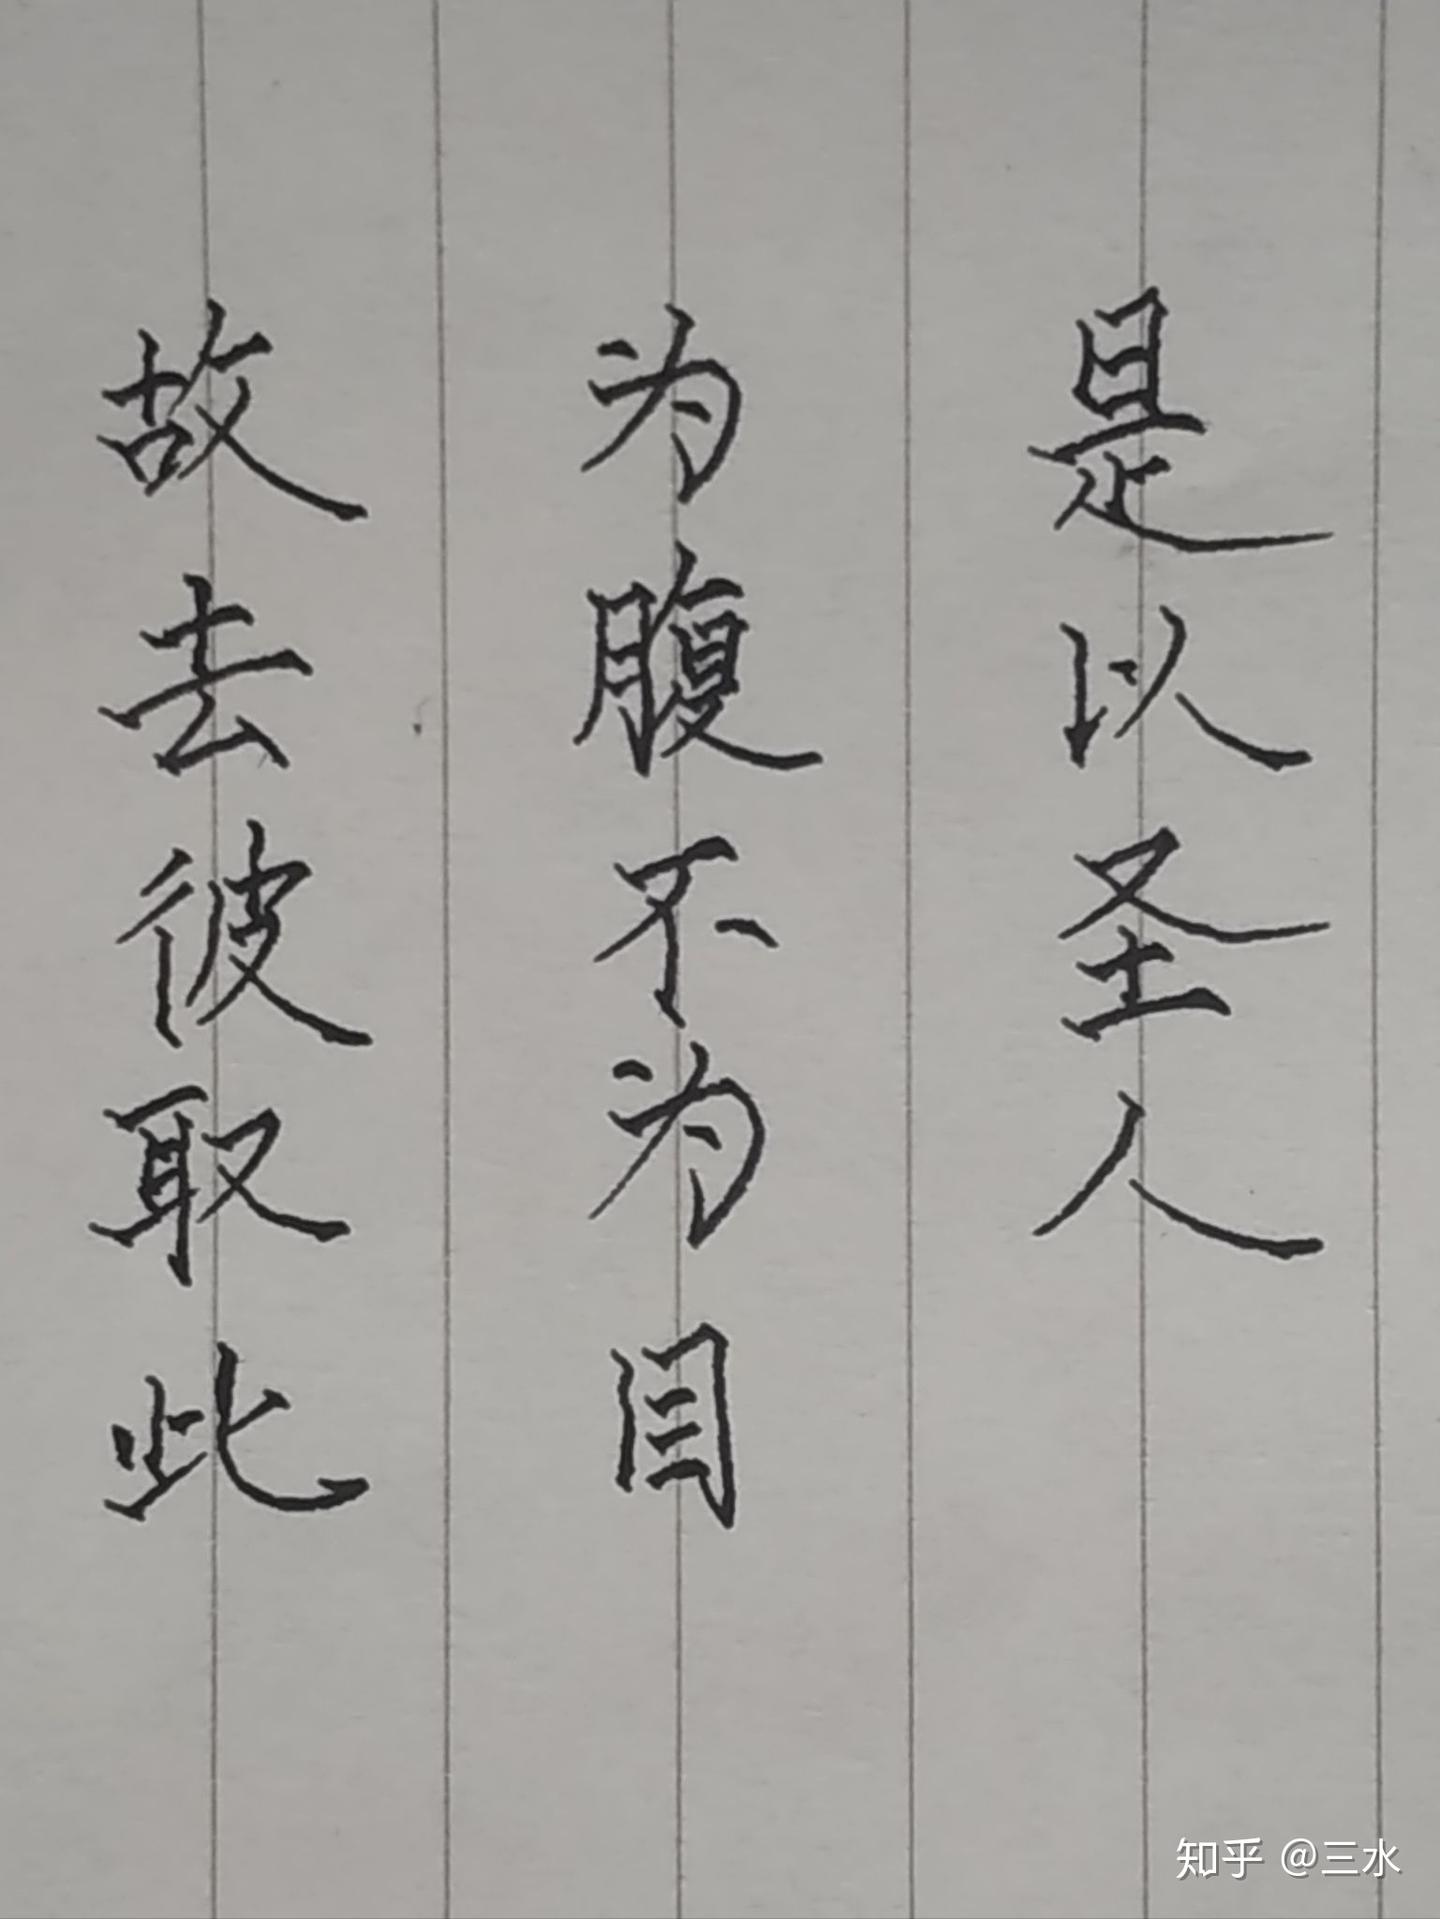 是以圣人
为腹不为目
故去彼取此
知乎 @三水